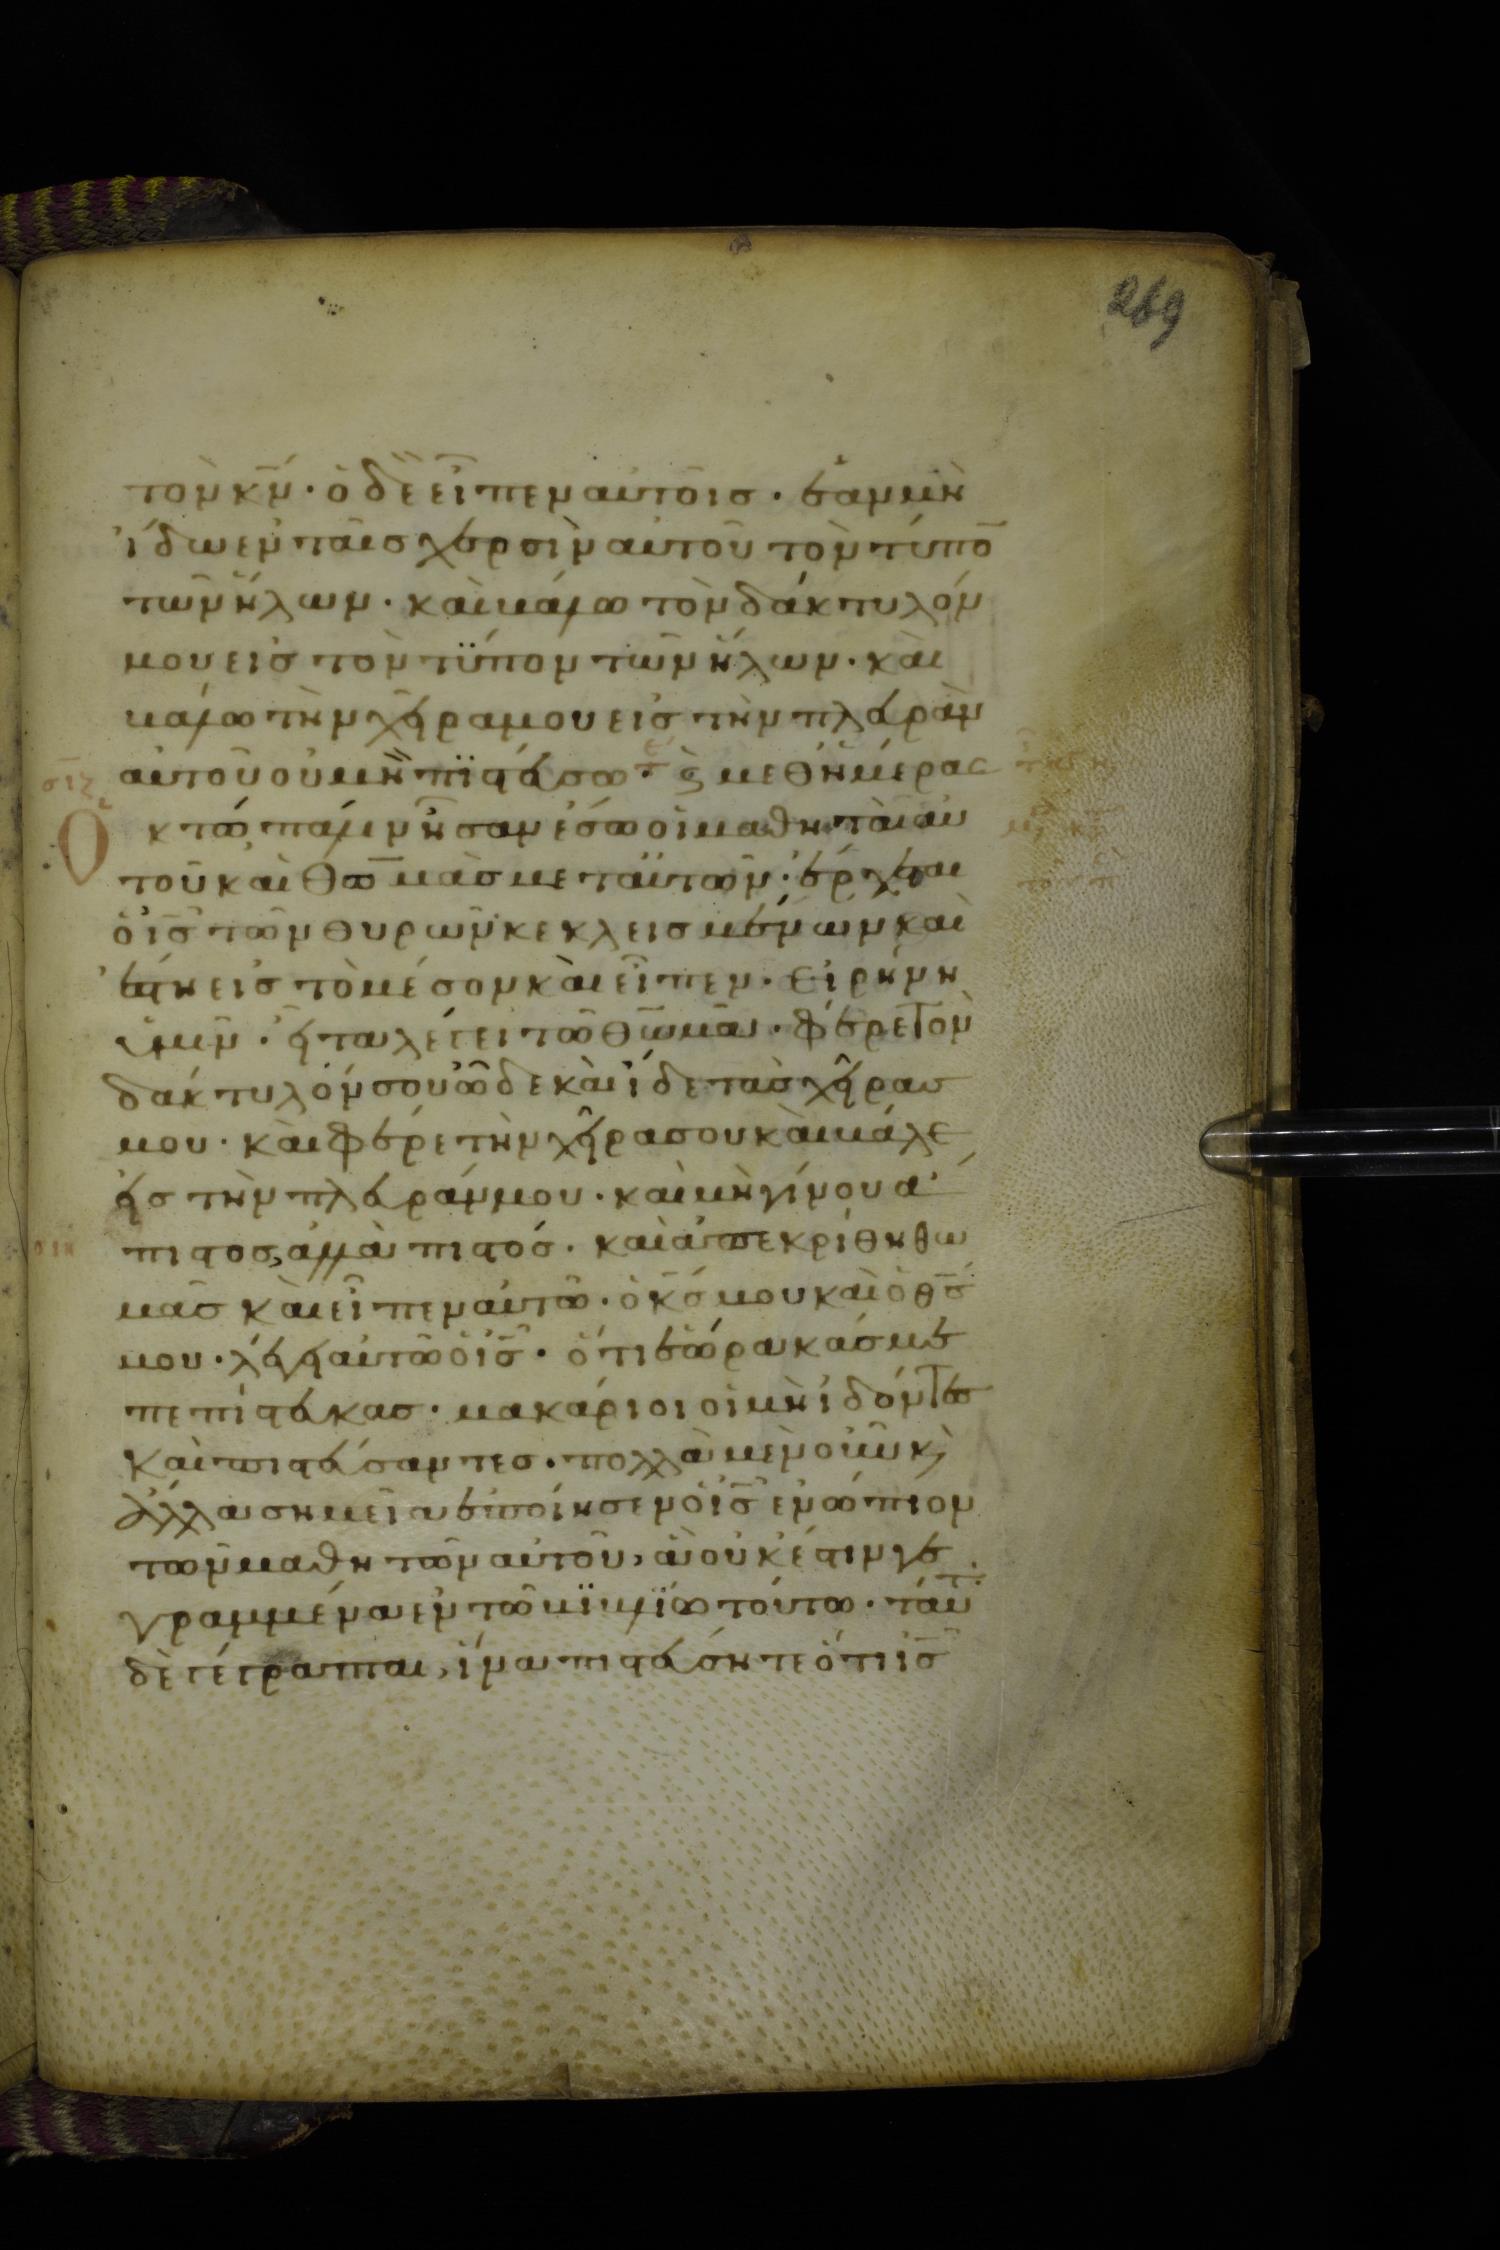 269
τὸν κ̅ν̅· ὁ δὲ εἶπεν αὐτοῖσ· ἐὰν μὴ
ἴδω ἐν ταῖσ χερσὶν αὐτοῦ τὸν τύπο̅
τῶν ἥλων· καὶ βάλω τὸν δάκτυλόν
μου εἰσ τὸν τϋπον τῶν ἥλων· καὶ
βάλω τὴν χεῖρα μου εἰσ τὴν πλευρὰν
αὐτοῦ οὐ μὴ πϊστεύσω· ϗ μεθ ἡμέρασ
σιζ
Ὀκτὼ πάλιν ἦσαν ἔσω οἱ μαθηταὶ αὐ
τοῦ καὶ θωμὰσ μετ αὐτῶν· ἔρχεται
ὁ ι̅σ̅ τῶν θυρῶν κεκλεισμένων καὶ
ἔστη εἰσ τὸ μέσον καὶ εἶπεν· εἰρήνη
ὑμῖν· εἶτα λέγει τῶ θωμᾶ· φέρε τὸν
δάκτυλόν σου ὧδε καὶ ἴδε τὰσ χεῖρασ
μου· καὶ φέρε τὴν χεῖρα σου καὶ βάλε
εἰσ τὴν πλευράν μου· καὶ μὴ γίνου ἄ
σιη
πιστοσ, ἀλλὰ πιστόσ· καὶ ἀπεκρίθη θω
μᾶσ καὶ εἶπεν αὐτῶ· ὁ κ̅σ̅ μου καὶ ὁ θ̅σ̅
μου· λέγει αὐτῶ ὁ ι̅σ̅· ὅτι ἑώρακάσ με
πεπίστευκασ· μακάριοι οἱ μὴ ἰδόντεσ
καὶ πιστεύσαντεσ· πολλὰ μὲν οὖν κ̀
ἄλλα σημεῖα ἐποίησεν ὁ ι̅σ̅ ἐνώπιον
τῶν μαθητῶν αὐτοῦ, ἃ οὐκ έστιν γε
γραμμένα ἐν τῶ βϊβλϊω τούτω· ταῦτ
δὲ γέγραπται, ἵνα πιστεύσητε ὅτι ι̅σ̅